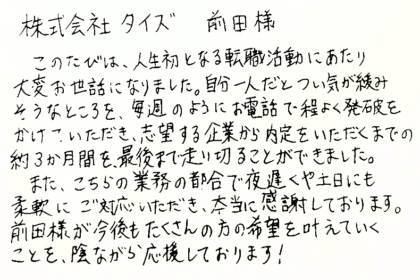 株式会社 タイズ 前田様
このたびは、人生初となる転職活動にあたり
大変お世話になりました。自分一人だとつい気が緩み
そうなところを、毎週のようにお電話で程よく発破を
かけていただき、志望する企業から内定をいただくまでの
約3か月間を、最後まで走り切ることができました。
また、こちらの業務の都合で夜遅くや土日にも
柔軟にご対応いただき、本当に感謝しております。
前田様が今後もたくさんの方の希望を叶えていく
ことを、陰ながら応援しております!